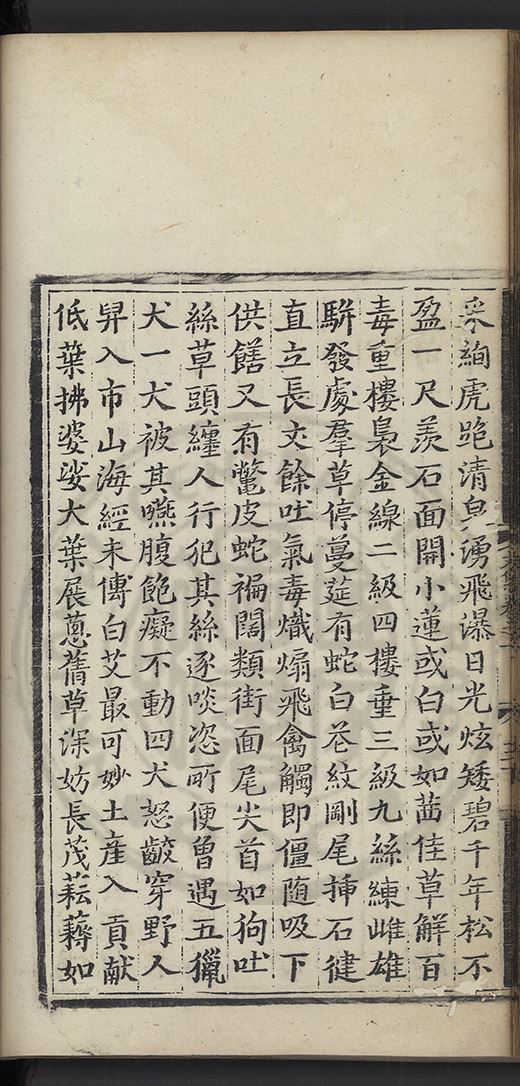 采絢虎跑清臭湧飛瀑日光炫矮碧千年松不
盈一尺羨石面開小蓮或白或如茜佳草解百
毒重樓裊金線二級四樓垂三級九絲練雌雄
駢發處羣草停蔓莚有蛇白花紋剛尾揷石徤
直立長丈餘吐氣毒熾煽飛禽觸即僵随吸下
供饍又有鼈皮蛇褊闊類街面尾尖首如狗吐
絲草頭纏人行犯其絲逐啖恣所便曾遇五獵
犬一犬被其嚥腹飽癡不動四犬怒齩穿野人
舁入市山海經未傳白艾最可妙土産入貢献
低葉拂婆娑大葉展蔥蒨草深妨長茂耘薅如